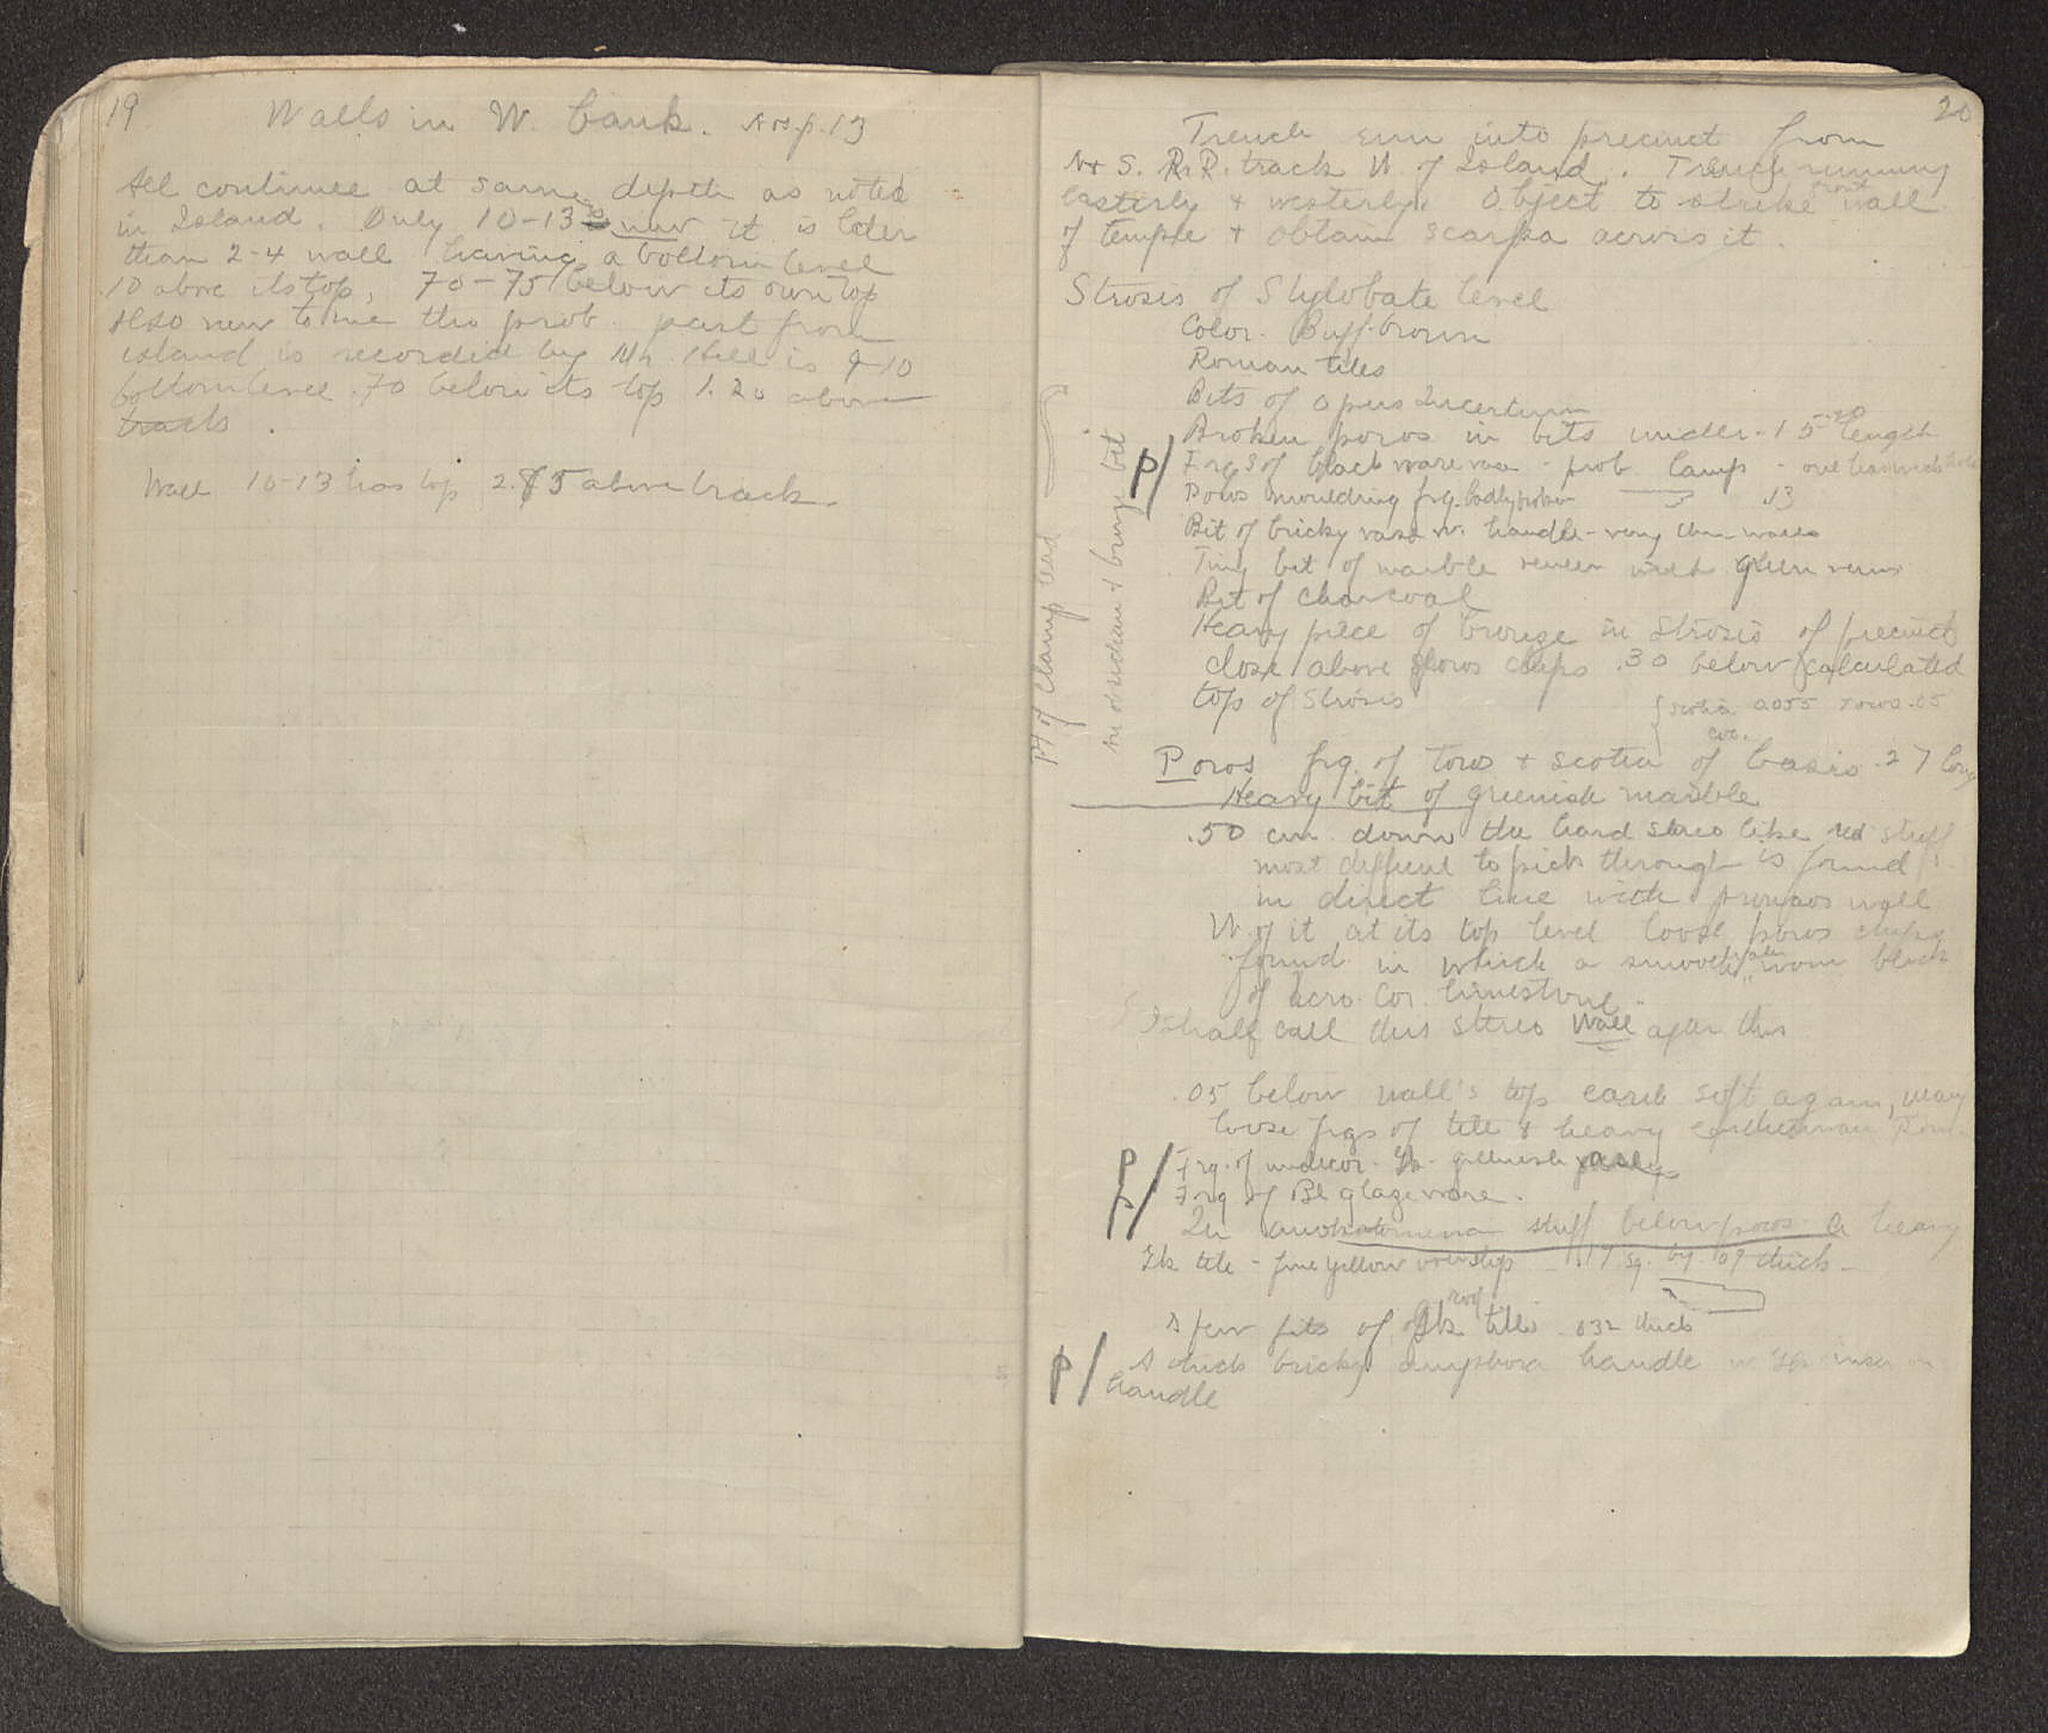 19
Walls in W. bank. p. 13
All continue at same depth as noted
in Island. Only 10-13 is new it is later
than 2-4 wall having a bottom level
.10 above its top, 70-75 below its own top
Also new to me tho prob. part from
island is recorded by Mr. Hill is 9-10
bottom level .70 below its top 1.20 above
track.
Wall 10-13 has top 2.85 above track
20
Trench run into precinct from
N + S. R.R. track W of Island. Trench running
easterly + westerly. Object to strike front wall
of temple + obtain scarpa across it.
Strosis of Stylobate level
Color. Buff-brown
Roman tiles
Bits of Opus Incertum
Broken poros in bits under .15-.20 length
P/ Frgs of black ware vase - prob. lamp - one has
Poros moulding frg. badly broken .13
Bit of bricky vase w. handle - very thin walls
Tiny bit of marble veneer with green veins
Bit of charcoal
Heavy piece of bronze in strosis of precinct
close above poros chips .30 below calculated
top of strosis
{ scotia 0.055 torus .05
Pt of clamp lead
+ bronze bit
Poros frg. of torus + scotia of basis .27 long
Heavy bit of greenish marble
.50 cm. down the hard stereo like red stuff
most difficult to pick through is found
in direct line with pronaos wall
W of it at its top level loose poros chips
found in which a smooth, water worn block
of Acro. Cor. limestone.
I shall call this stereo wall after this
.05 below wall's top earth soft again, many
loose frgs of tile & heavy earthenware
P/ Frg. of undecor. Gk.
P/ Frg of Bl glaze ware.
In stuff below poros a heavy
Gk tile - fine yellow .17 sq. by .09 thick -
A few bits of Gk roof tiles .032 thick
P/ A thick bricky amphora handle
handle